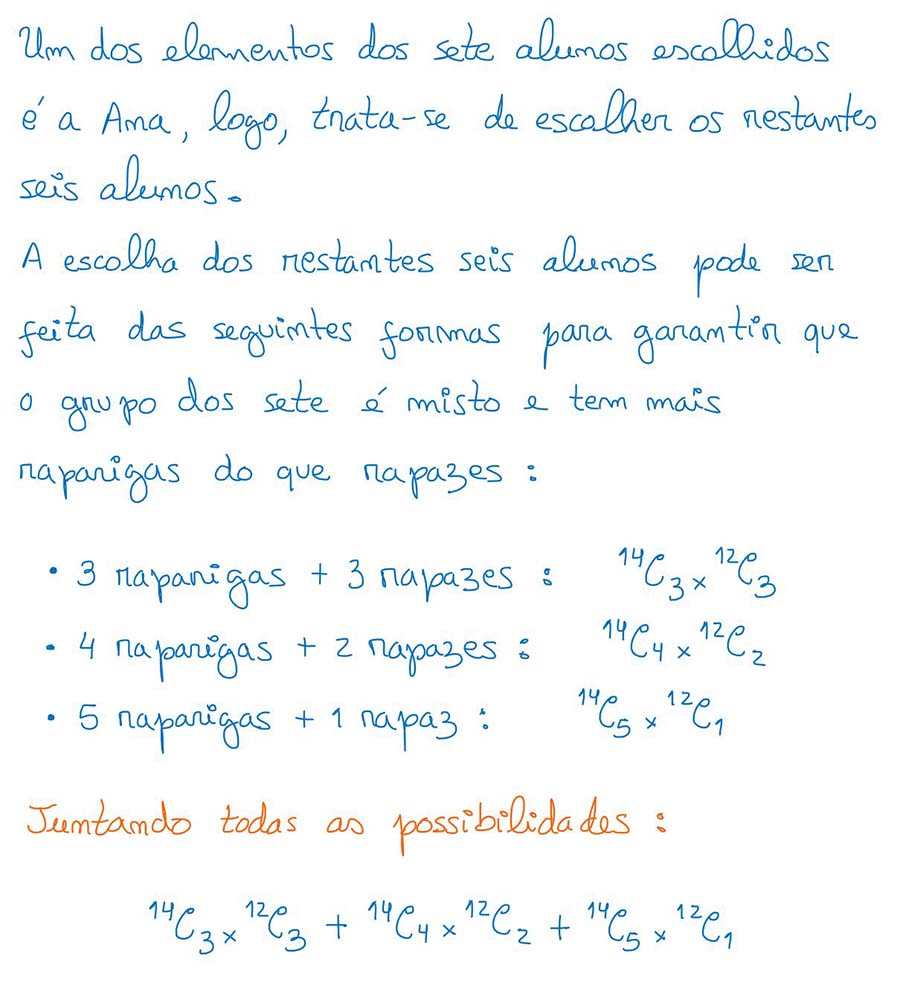 Um dos elementos dos sete alunos escolhidos
é a Ana, logo, trata-se de escolher os restantes
seis alunos.
A escolha dos restantes seis alunos pode ser
feita das seguintes formas para garantir que
o grupo dos sete é misto e tem mais
raparigas do que rapazes :
• 3 raparigas + 3 rapazes : ¹⁴C₃ × ¹²C₃
• 4 raparigas + 2 rapazes : ¹⁴C₄ × ¹²C₂
• 5 raparigas + 1 rapaz : ¹⁴C₅ × ¹²C₁
Juntando todas as possibilidades :
¹⁴C₃ × ¹²C₃ + ¹⁴C₄ × ¹²C₂ + ¹⁴C₅ × ¹²C₁